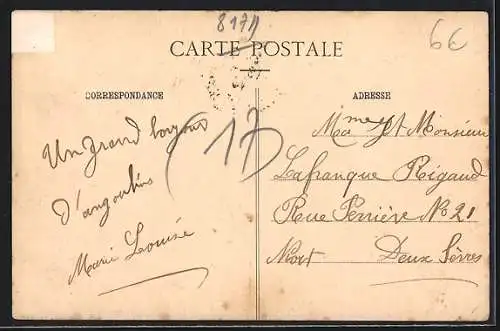 8171
6€
CARTE POSTALE
CORRESPONDANCE
ADRESSE
(17)
Un grand bonjour
d'angoulins
Marie Louise
Mame et Monsieur
Lafranque Rigaud
Rue Perrière No 21
Niort Deux Sèvres